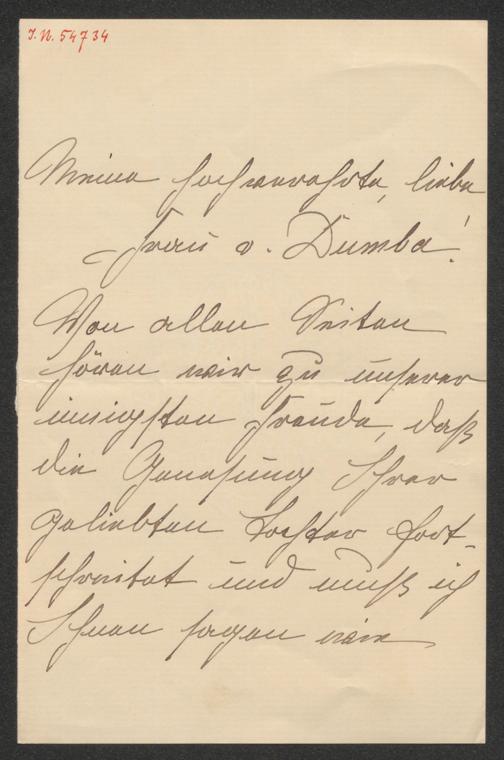 I. N. 54734
Meine hochverehrte, liebe
Frau v. Dumba!
Von allen Seiten
hören wir zu unserer
innigsten Freude, daß
die Genesung Ihrer
geliebten Tochter fort-
schreitet und muß ich
Ihnen sagen wie